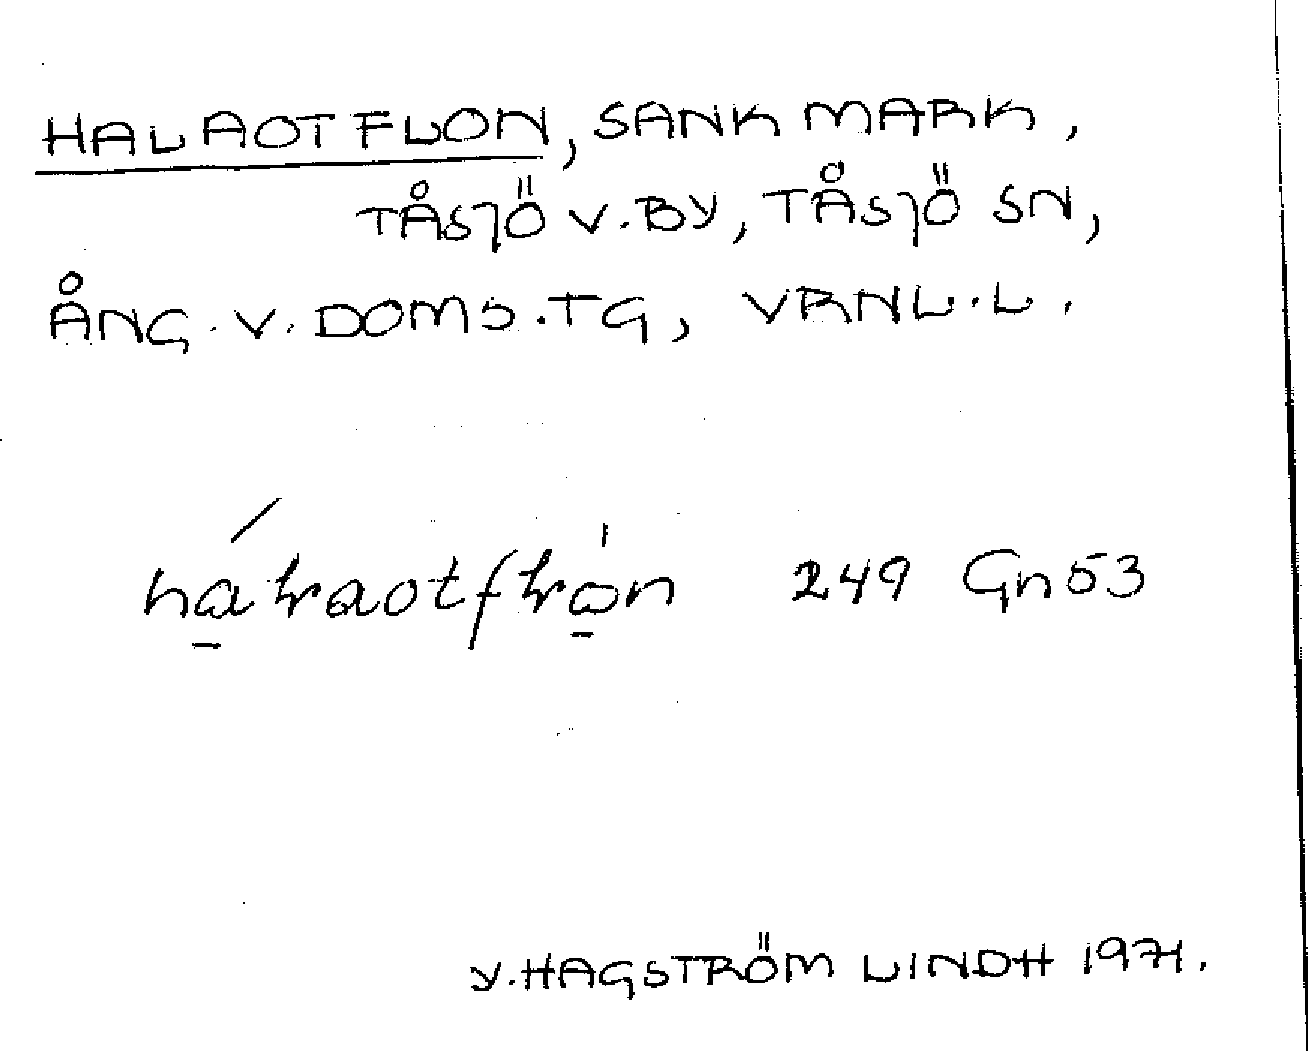 HALAOTFLON, SANK MARK,
TÅSJÖ V.BY, TÅSJÖ SN,
ÅNG. V. DOMS.TG, VRNL.L.
249 Gn53
Y. HAGSTRÖM LINDH 1971.